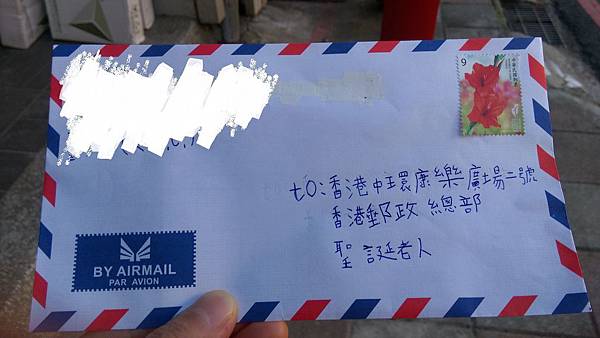 9
中華民國郵票
to:香港中環康樂廣場二號
香港郵政總部
聖誕老人
BY AIRMAIL
PAR AVION